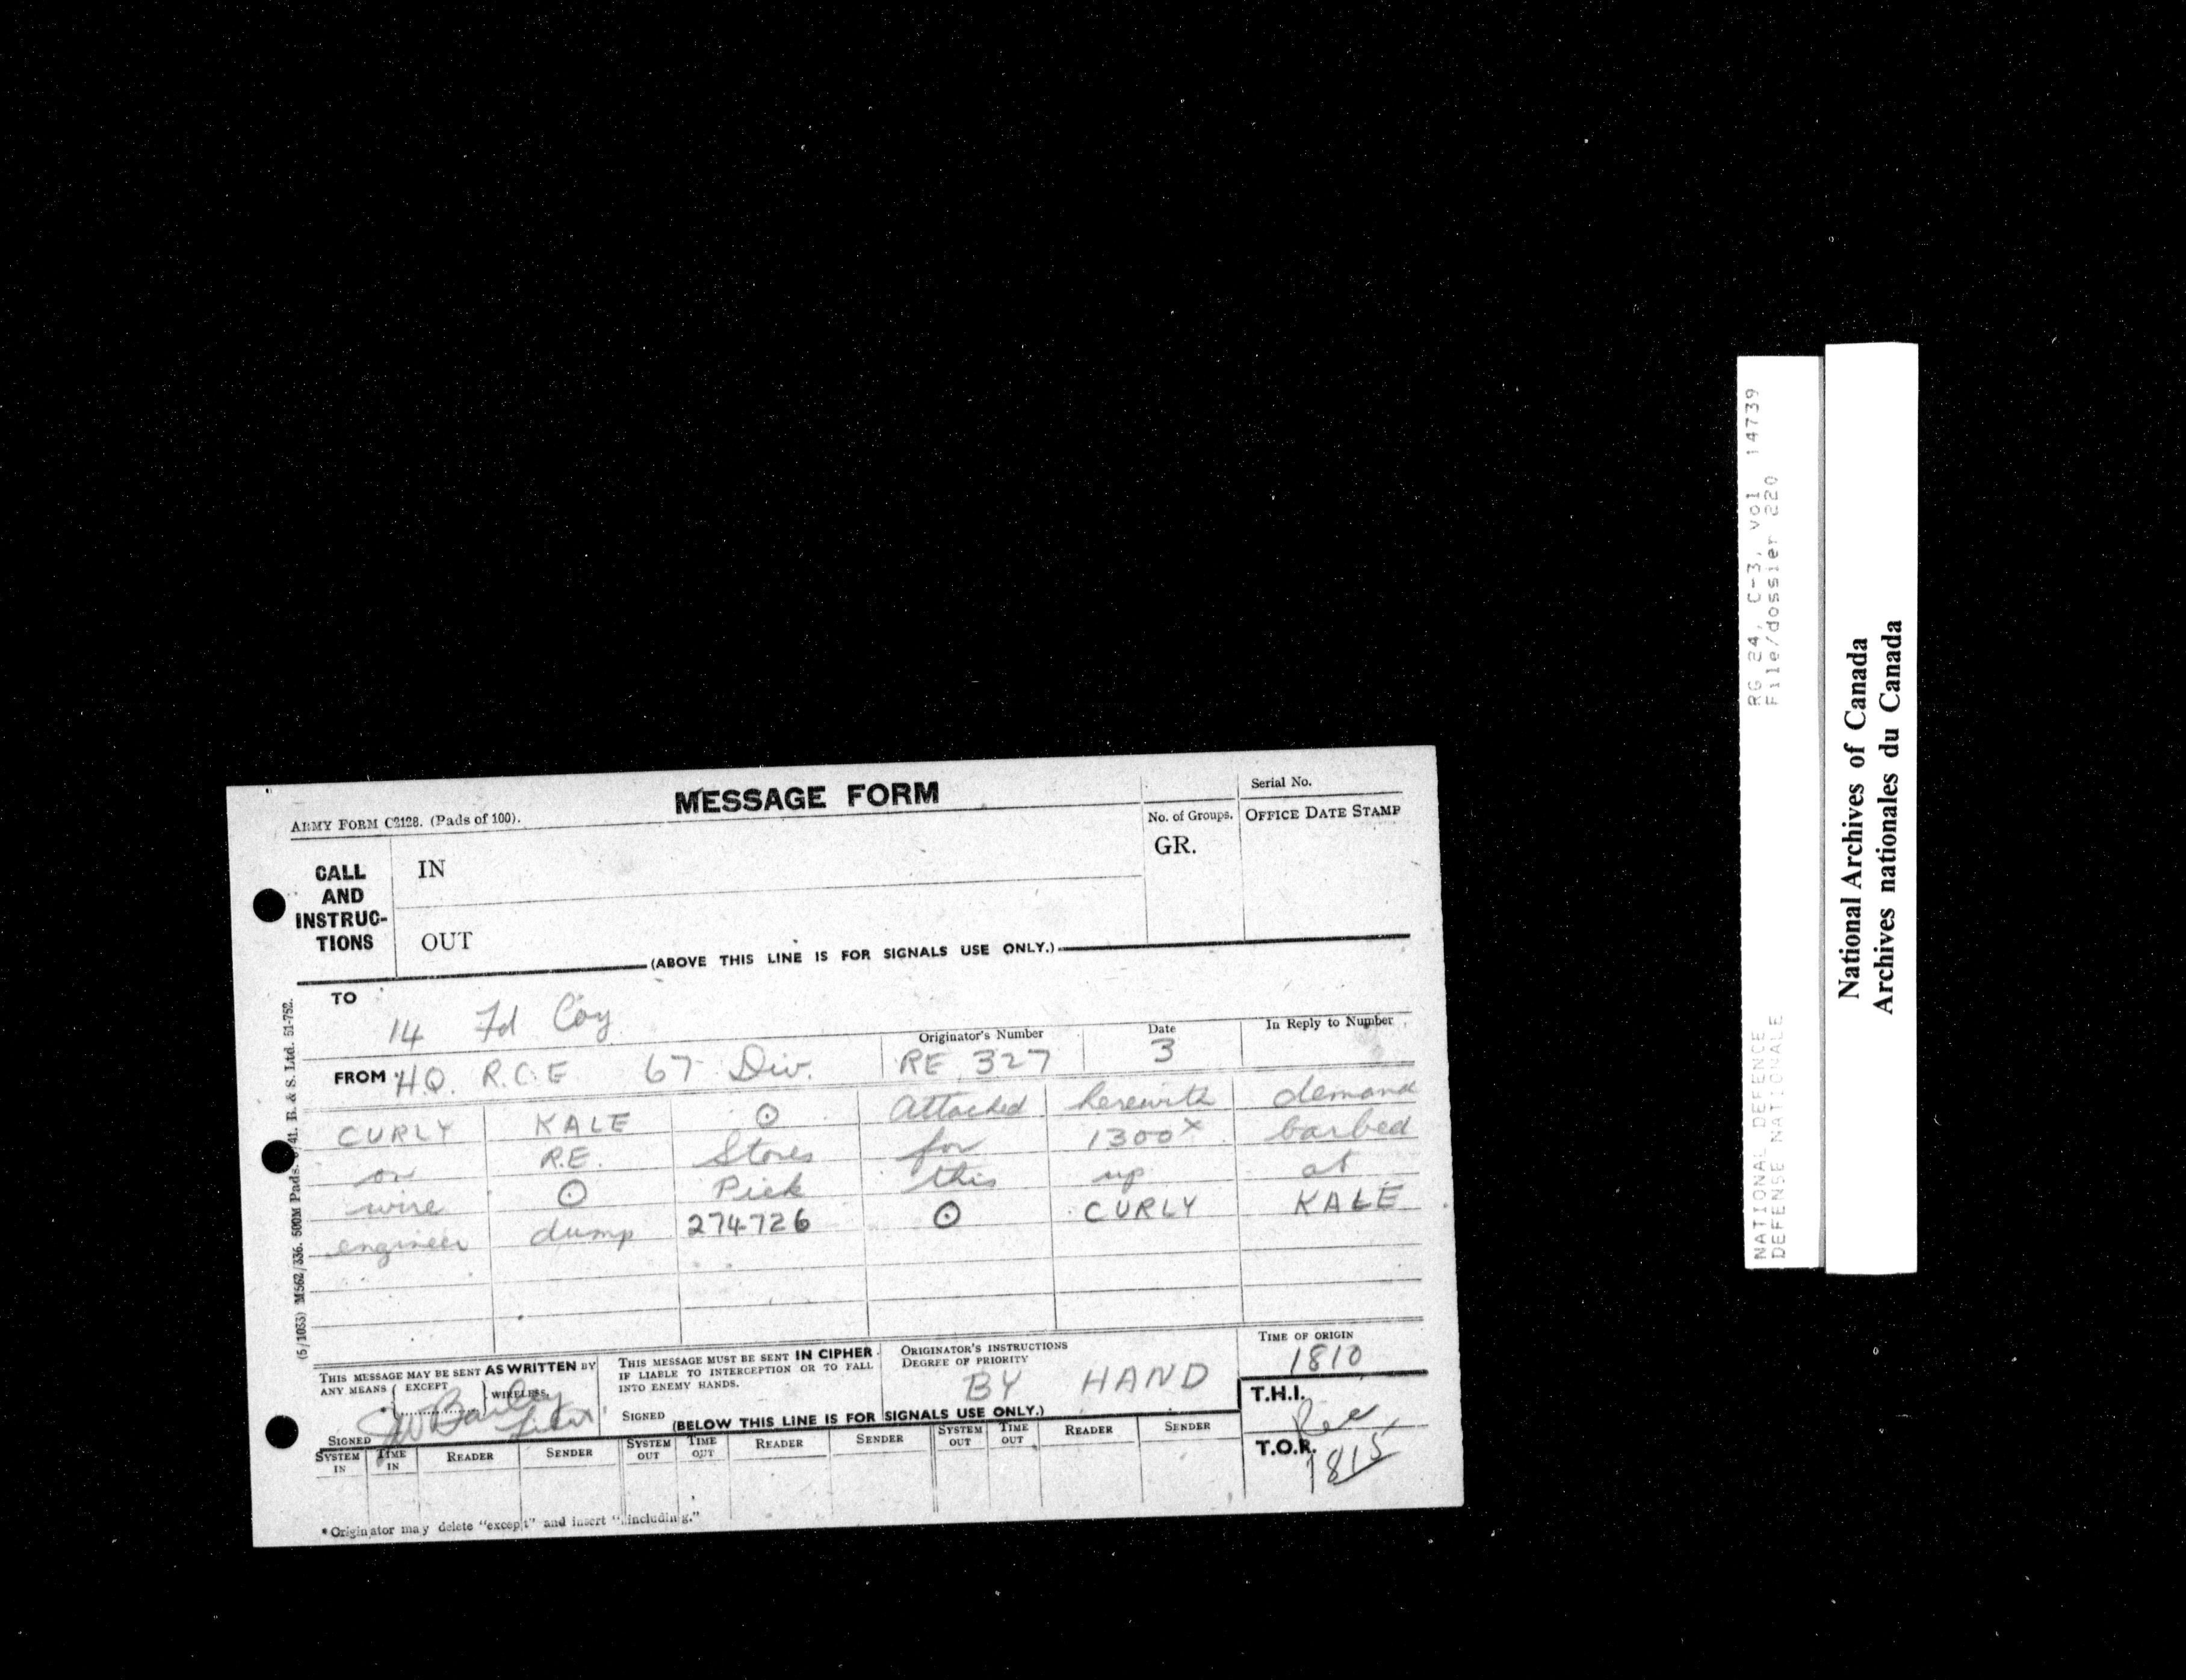 MESSAGE FORM
Serial No.
ARMY FORM C2128. (Pads of 100).
No. of Groups.
OFFICE DATE STAMP
GR.
CALL
AND
INSTRUC-
TIONS
IN
OUT
(ABOVE THIS LINE IS FOR SIGNALS USE ONLY.)
TO
14 Fd Coy
Originator's Number
Date
In Reply to Number
FROM H.Q. R.C.E 67 Div. RE 327 3
CURLY KALE ⊙ Attached herewith demand
on R.E. Stores for 1300x barbed
wire ⊙ Pick this up at
engineer dump 274726 ⊙ CURLY KALE
THIS MESSAGE MAY BE SENT AS WRITTEN BY
ANY MEANS { EXCEPT } WIRELESS.
SIGNED
THIS MESSAGE MUST BE SENT IN CIPHER
IF LIABLE TO INTERCEPTION OR TO FALL
INTO ENEMY HANDS.
SIGNED
ORIGINATOR'S INSTRUCTIONS
DEGREE OF PRIORITY
BY HAND
TIME OF ORIGIN
1810
T.H.I.
T.O.R.
1815
(BELOW THIS LINE IS FOR SIGNALS USE ONLY.)
SYSTEM IN TIME IN READER SENDER SYSTEM OUT TIME OUT READER SENDER SYSTEM OUT TIME OUT READER SENDER
*Originator may delete "except" and insert "including."
(5/1033) M562/336. 500M Pads. /41. B. & S. Ltd. 51-752.
RG 24, C-3, vol 14739
File/dossier 220
NATIONAL DEFENCE
DEFENSE NATIONALE
National Archives of Canada
Archives nationales du Canada